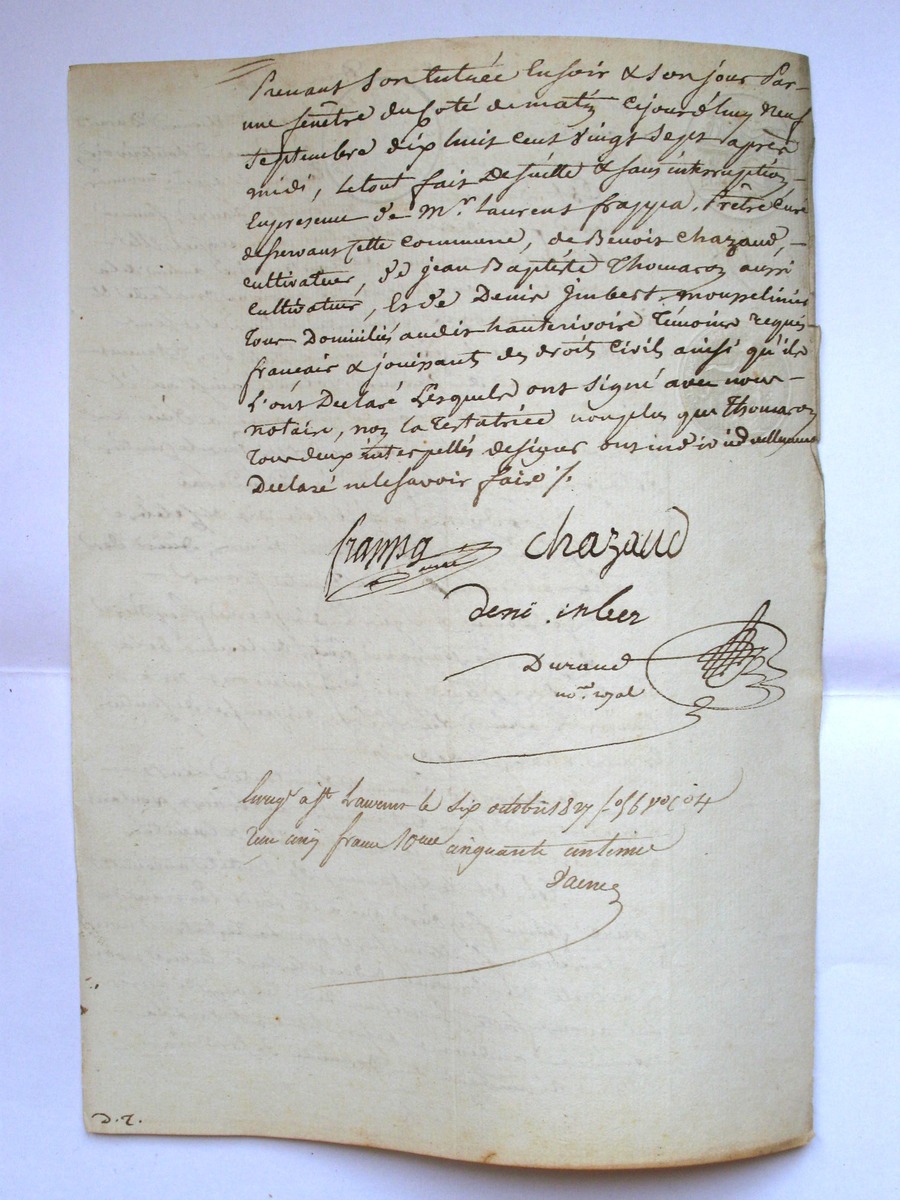 Prenant Son Entrée Ensoir & Son jour Par-
une fenêtre du Coté de matin Cejourd'huy Neuf
Septembre dix huit cent Vingt Sept après
midi, le tout fait De Suitte & sans interruption-
En presence de Mr. Laurent frappa, Prêtre Curé
deservant cette Commune, de Benoit Chazaud,-
Cultivateur, de jean Baptiste Thomaron aussi
Cultivateur, & de Denis Jmbert mousselinier
tous Domiciliés audit hauterivoire Témoins requis
francais & jouissant des droits Civils ainsi qu'ils
L'ont Declaré Lesquels ont Signé avec nous-
notaire, non la Testatrice non plus que Thomaron
tous deux interpellés de signer ont individuellement
Declaré ne le savoir faire /.
frappa curé
Chazaud
deni . inber
Durand
nore. royal
Enregé à St Laurent le Six octobre 1827 fo 56 vo Co 4
Reçu cinq francs 10eme cinquante centimes
D. T.